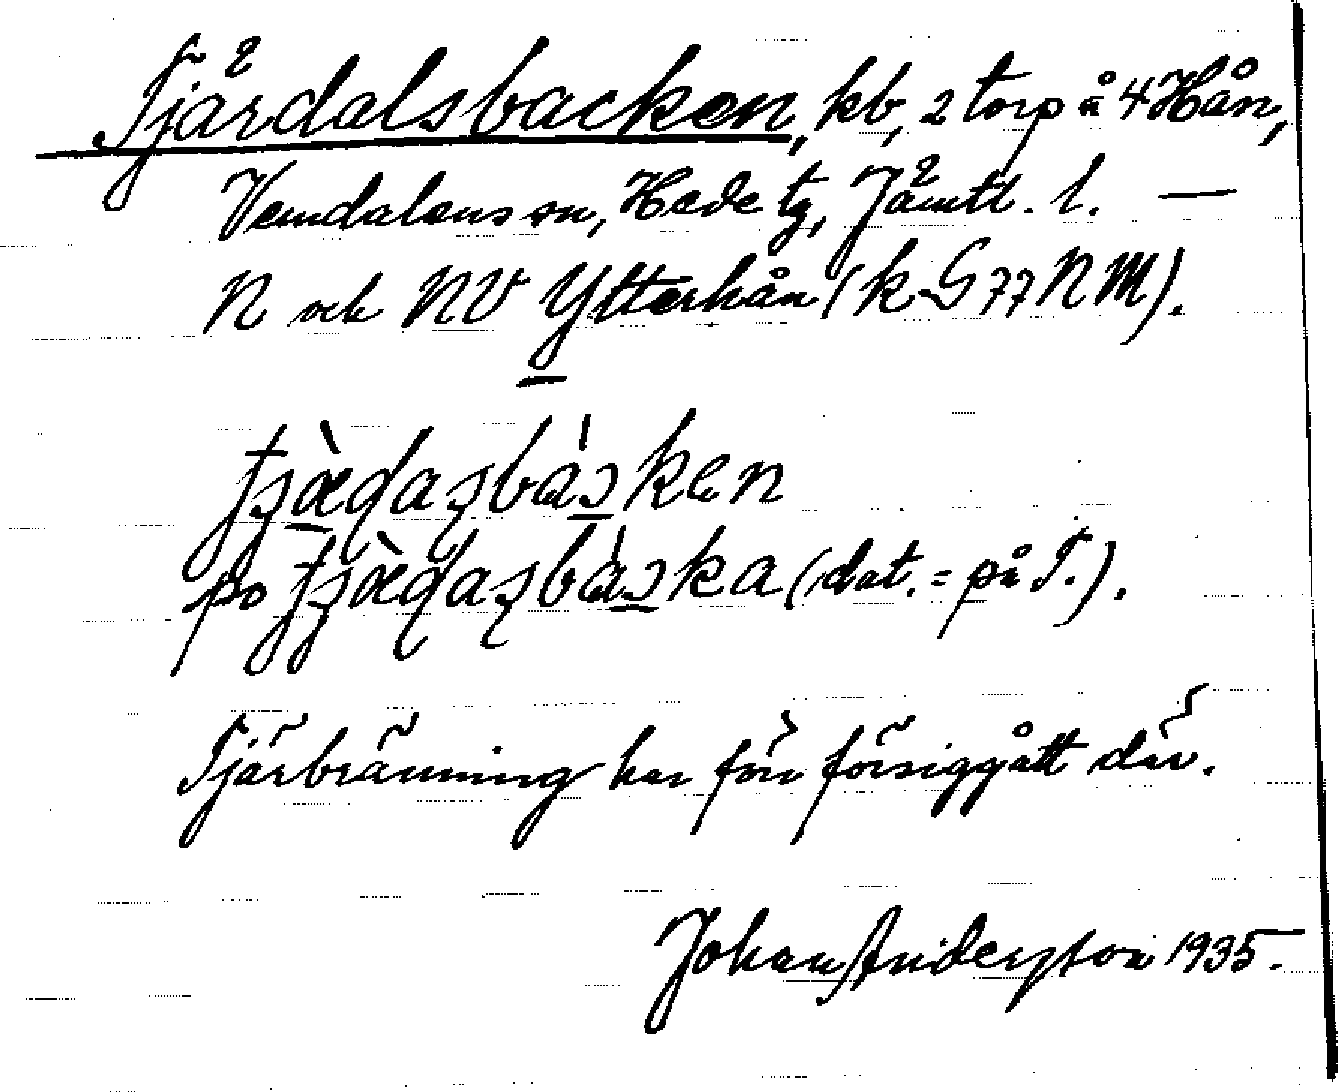 Tjärdalsbacken, kb, 2 torp å 4 Hån,
Vemdalens sn, Hede tg, Jämtl. l. —
N och NV Ytterhån (k G 77 N M).
po (dat. = på T.).
Tjärbränning har förr försiggått där.
Johan Anderson 1935.